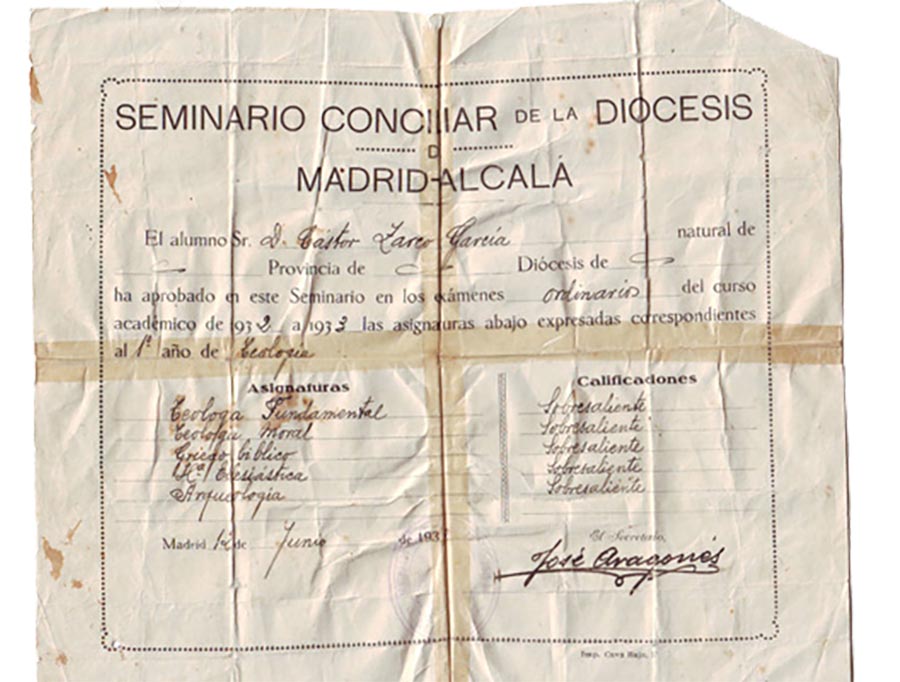 SEMINARIO CONCILIAR DE LA DIOCESIS
D
MADRID-ALCALÁ
El alumno Sr. D. Cástor Zarco García natural de
Provincia de Diócesis de
ha aprobado en este Seminario en los exámenes ordinarios del curso
académico de 1932 a 1933 las asignaturas abajo expresadas correspondientes
al 1º año de Teología
Asignaturas Calificaciones
Teologa Fundamental Sobresaliente
Teología Moral Sobresaliente
Griego bíblico Sobresaliente
Hª Eclesiástica Sobresaliente
Arqueología Sobresaliente
Madrid de Junio de 193
El Secretario,
José Aragonés
Imp. Cava Baja,